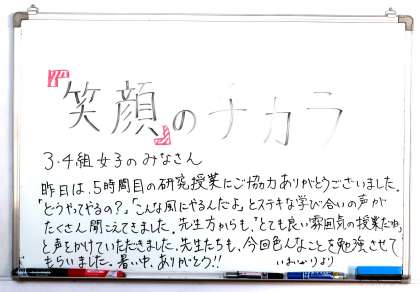 『笑顔』のチカラ
3・4組女子のみなさん
昨日は、5時間目の研究授業にご協力ありがとうございました。
「どうやってやるの?」、「こんな風にやるんだよ」とステキな学び合いの声が
たくさん聞こえてきました。先生方からも、"とても良い雰囲気の授業だね"
と声をかけていただきました。先生たちも、今回色んなことを勉強させて
もらいました。暑い中、ありがとう!!